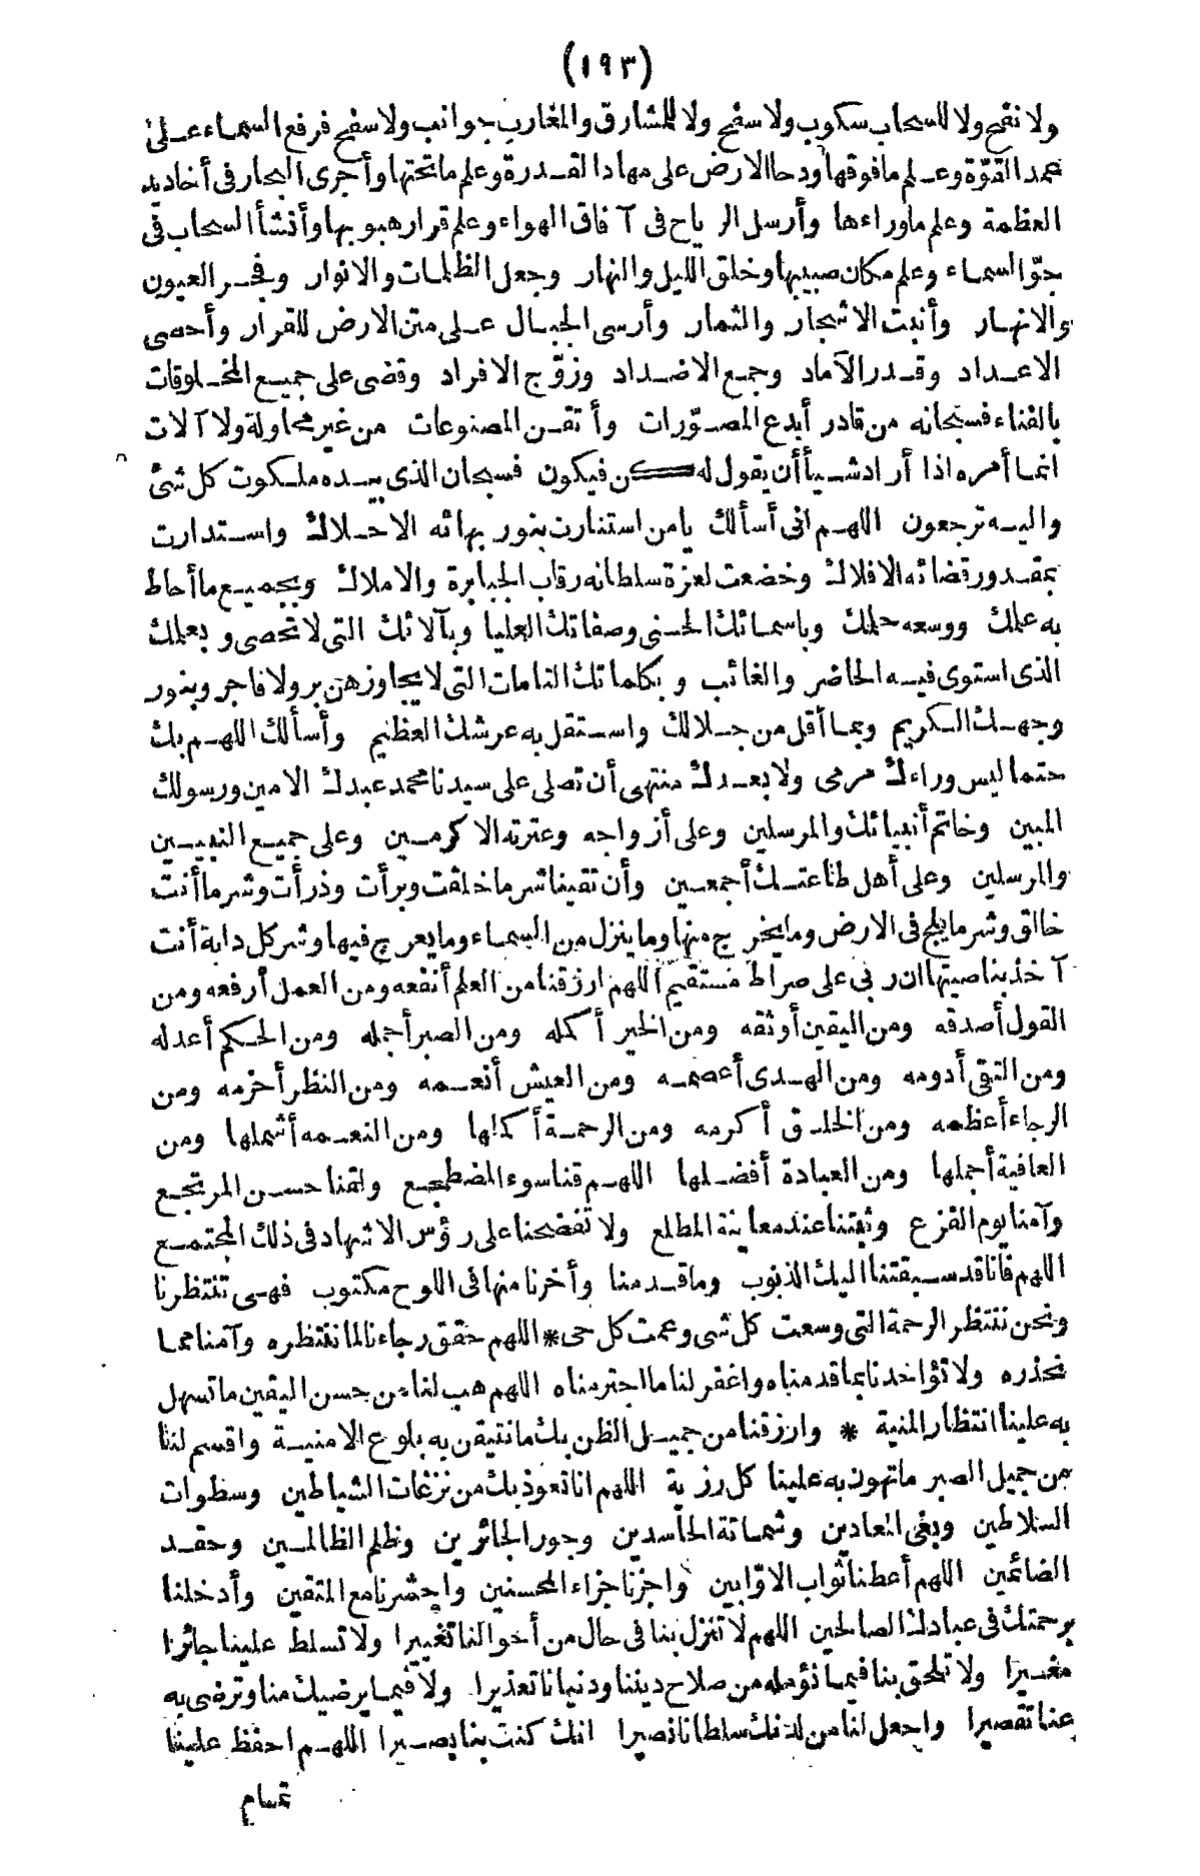 (١٩٣)
ولا نفح ولا للسحاب سكوب ولا سفح ولا للمشارق والمغارب جوانب ولا سفح فرفع السماء على
عمد القوّة وعلم ما فوقها ودحا الارض على مهاد القدرة وعلم ما تحتها وأجرى البحار فى أخاديد
العظمة وعلم ما وراءها وأرسل الرياح فى آفاق الهواء وعلم قرار هبوبها وأنشأ السحاب فى
جوّ السماء وعلم مكان صبيبها وخلق الليل والنهار وجعل الظلمات والانوار وفجر العيون
والانهار وأنبت الاشجار والثمار وأرسى الجبال على متن الارض للقرار وأحصى
الاعداد وقدر الآماد وجمع الاضداد وزوّج الافراد وقضى على جميع المخلوقات
بالفناء فسبحانه من قادر أبدع المصوّرات وأتقن المصنوعات من غير محاولة ولا آلات
انما أمره اذا أراد شيأ أن يقول له كن فيكون فسبحان الذى بيده ملكوت كل شئ
واليه ترجعون اللهم انى أسألك يا من استنارت بنور بهائه الاحلاك واستدارت
بمقدور قضائه الافلاك وخضعت لعزة سلطانه رقاب الجبابرة والاملاك وبجميع ما أحاط
به علمك ووسعه حلمك وباسمائك الحسنى وصفاتك العليا وبآلائك التى لا تحصى وبعلمك
الذى استوى فيه الحاضر والغائب وبكلماتك التامات التى لا يجاوزهن بر ولا فاجر وبنور
وجهك الكريم وبما أقل من جلالك واستقل به عرشك العظيم وأسألك اللهم بك
حتما ليس وراءك مرمى ولا بعدك منتهى أن تصلى على سيدنا محمد عبدك الامين ورسولك
المبين وخاتم أنبيائك والمرسلين وعلى أزواجه وعترته الاكرمين وعلى جميع النبيين
والمرسلين وعلى أهل طاعتك أجمعين وأن تقينا شر ما خلقت وبرأت وذرأت وشر ما أنت
خالق وشر ما يلج فى الارض وما يخرج منها وما ينزل من السماء وما يعرج فيها وشر كل دابة أنت
آخذ بناصيتها ان ربى على صراط مستقيم اللهم ارزقنا من العلم أنفعه ومن العمل أرفعه ومن
القول أصدقه ومن اليقين أوثقه ومن الخير أكمله ومن الصبر أجمله ومن الحكم أعدله
ومن التقى أدومه ومن الهدى أعصمه ومن العيش أنعمه ومن النظر أحزمه ومن
الرجاء أعظمه ومن الخلق أكرمه ومن الرحمة أكملها ومن النعمه أشملها ومن
العافية أجملها ومن العبادة أفضلها اللهم قنا سوء المضطجع ولقنا حسن المرتجع
وآمنا يوم الفزع وثبتنا عند معاينة المطلع ولا تفضحنا على رؤس الاشهاد فى ذلك المجتمع
اللهم فانا قد سبقتنا اليك الذنوب وما قدمنا وأخرنا منها فى اللوح مكتوب فهى تنتظرنا
ونحن ننتظر الرحمة التى وسعت كل شى وعمت كل حى * اللهم حقق رجاءنا لما ننتظره وآمنا مما
نحذره ولا تؤاخذنا بما قدمناه واغفر لنا ما اجترمناه اللهم هب لنا من حسن اليقين ما تسهل
به علينا انتظار المنية * وارزقنا من جميل الظن بك ما نتيقن به بلوغ الامنية واقسم لنا
من جميل الصبر ما تهون به علينا كل رزية اللهم انا نعوذ بك من نزغات الشياطين وسطوات
السلاطين وبغى المعادين وشماتة الحاسدين وجور الجائرين وظلم الظالمين وحقد
الضائمين اللهم أعطنا ثواب الاوّابين واجزنا جزاء المحسنين واحشرنا مع المتقين وأدخلنا
برحمتك فى عبادك الصالحين اللهم لا تنزل بنا فى حال من أحوالنا تغييرا ولا تسلط علينا جائرا
مغيرا ولا تلحق بنا فيما نؤمله من صلاح ديننا ودنيانا تعذيرا ولا فيما يرضيك منا وترضى به
عنا تقصيرا واجعل لنا من لدنك سلطانا نصيرا انك كنت بنا بصيرا اللهم احفظ علينا
تمام